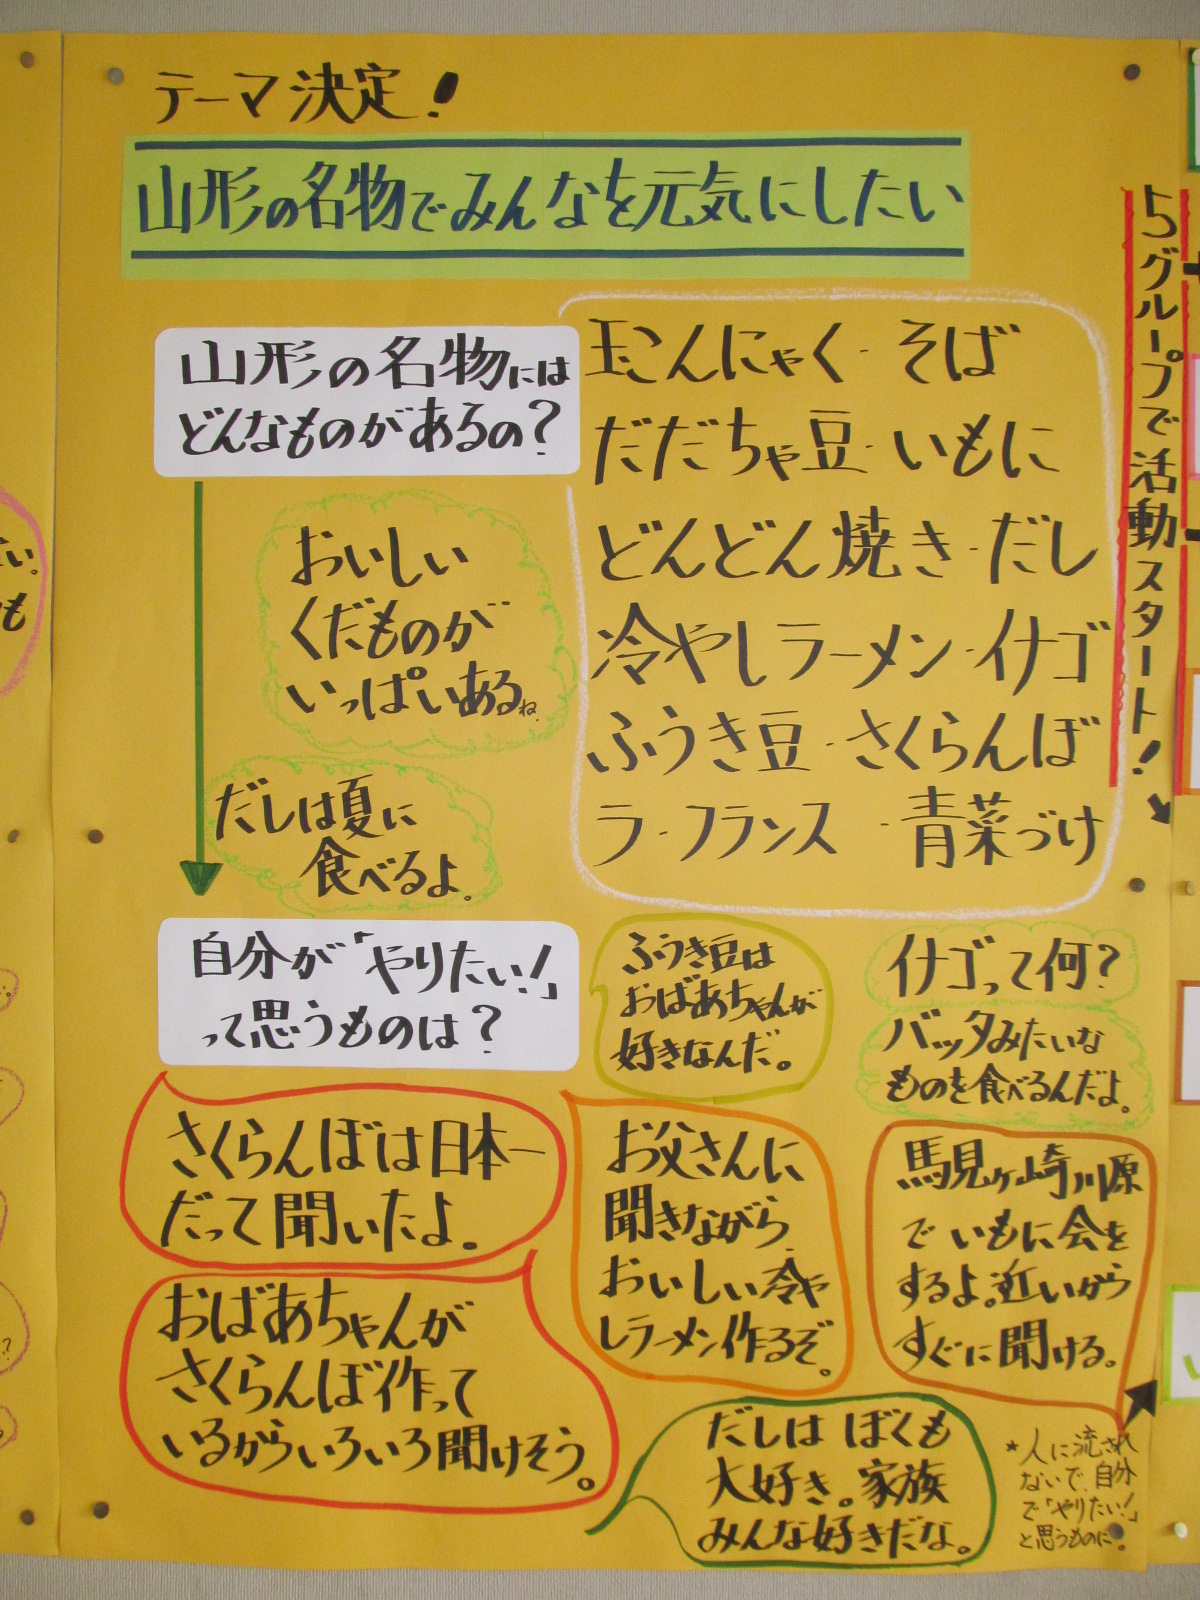 テーマ決定!
山形の名物でみんなを元気にしたい
山形の名物には
どんなものがあるの?
玉こんにゃく・そば
だだちゃ豆・いもに
どんどん焼き・だし
冷やしラーメン・イナゴ
ふうき豆・さくらんぼ
ラ・フランス・青菜づけ
おいしい
くだものが
いっぱいあるね。
だしは夏に
食べるよ。
5グループで活動スタート!
自分が「やりたい!」
って思うものは?
ふうき豆は
おばあちゃんが
好きなんだ。
イナゴって何?
バッタみたいな
ものを食べるんだよ。
さくらんぼは日本一
だって聞いたよ。
お父さんに
聞きながら
おいしい冷や
しラーメン作るぞ。
馬見ヶ崎川原
でいもに会を
するよ。近いから
すぐに聞ける。
おばあちゃんが
さくらんぼ作って
いるからいろいろ聞けそう。
だしは ぼくも
大好き。家族
みんな好きだな。
★人に流され
ないで、自分
で「やりたい!」
と思うものに。